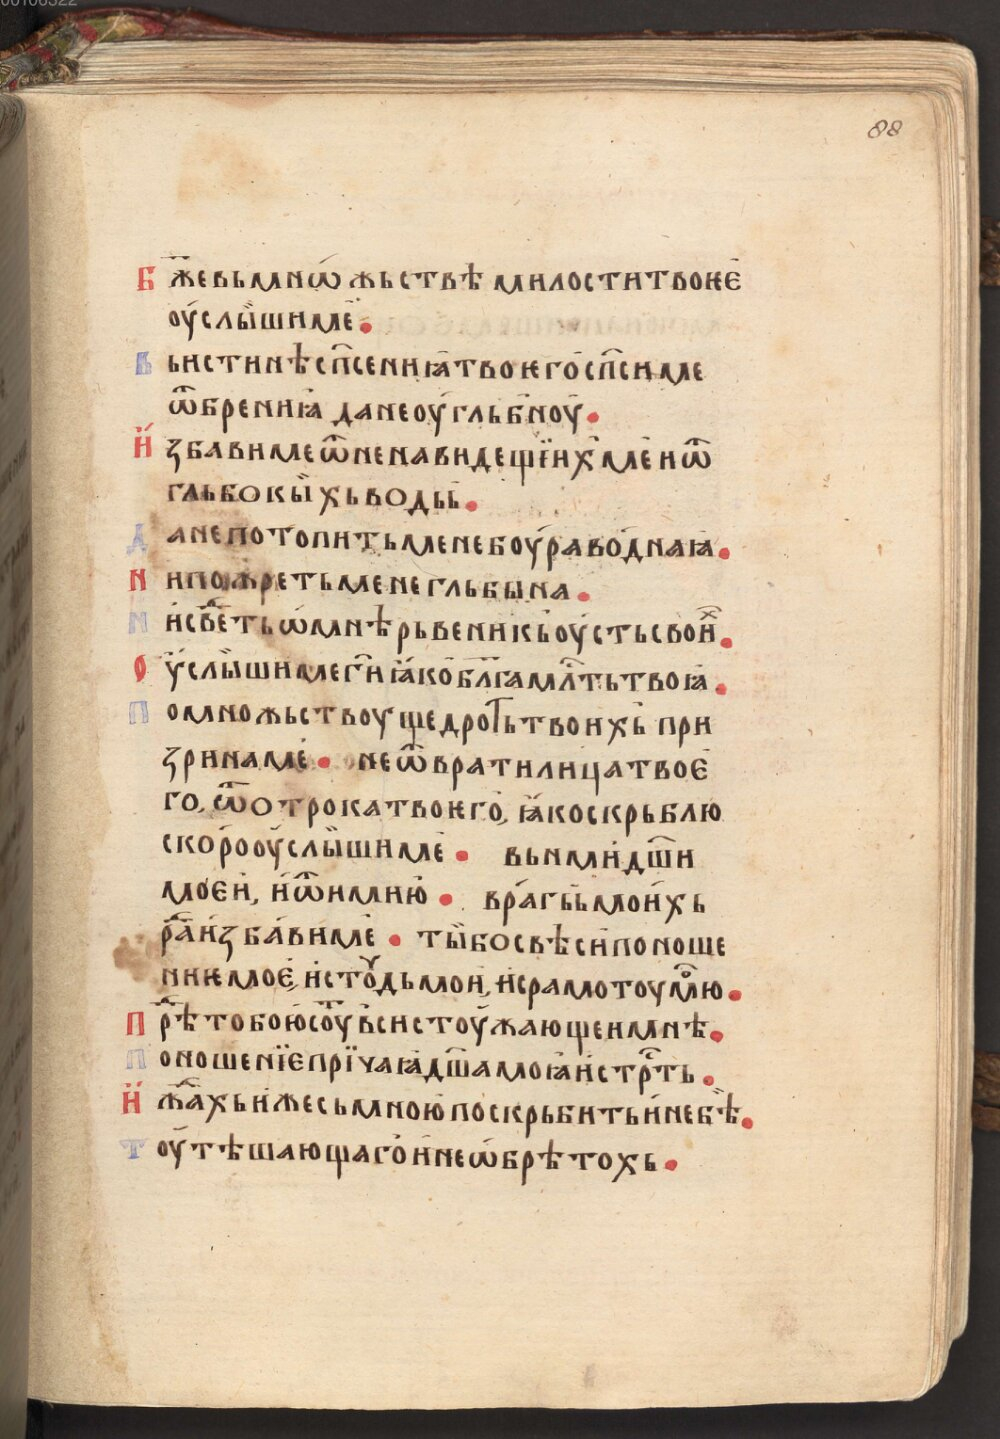 00106322
88
Б҃же вь мнѡжьствѣ милости твоѥе
оуслышиме.
Вь истинѣ сп҃сениꙗ твоѥго сп҃си ме
ѿ брениꙗ да не оугльбноу.
Избави ме ѿ ненавидещїих ме и ѿ
гльбокыхь водь.
Да не потопить мене боура воднаꙗ.
Ни пожреть мене гльбына.
Ни свⷣеть ѡ мнѣ рьвеникь оусть своиⷯ.
Оуслыши ме г҃и ꙗко бл҃га млⷭ҇ть твоꙗ.
По множьствоу щедроть твоихь при
зри на ме. не ѿврати лица твоѥ
го, ѿ отрока твоѥго, ꙗко скрьблю
скоро оуслыши ме. вьнми дш҃и
моѥи, и ѿими ю. врагь моихь
раⷣи избави ме. ты бо свѣси поноше
ниѥ моѥ, и стоудь мои, и срамотоу мⷪю.
Прⷣѣ тобою соуⷮ вси стоужающеи мнѣ.
Поношенїе прїчаꙗ дш҃а моꙗ и стрⷭ҇ть.
И жⷣахь иже сь мною поскрьбить и не бѣ.
Тоутѣшающаго и не ѡбрѣтохь.